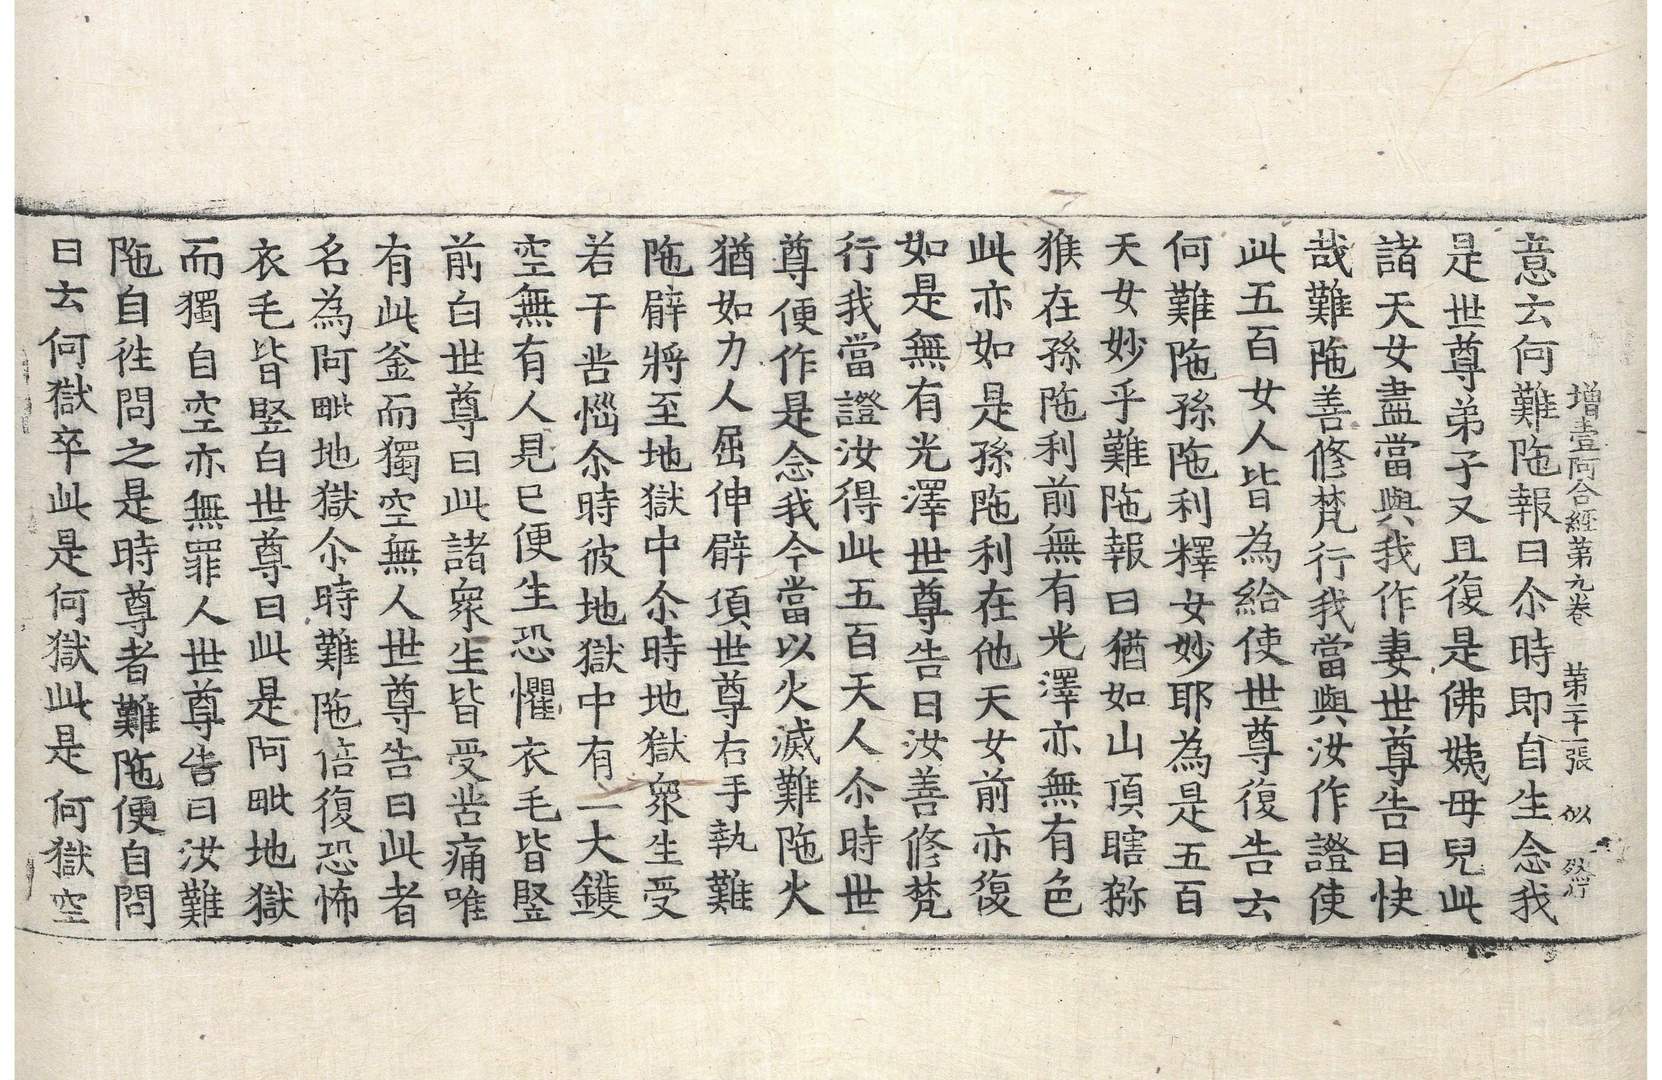 增壹阿含經第九卷 第二十一張 似
意云何難陁報曰尒時即自生念我
是世尊弟子又且復是佛姨母兒此
諸天女盡當與我作妻世尊告曰快
哉難陁善修梵行我當與汝作證使
此五百女人皆為給使世尊復告云
何難陁孫陁利釋女妙耶為是五百
天女妙乎難陁報曰猶如山頂瞎猕
猴在孫陁利前無有光澤亦無有色
此亦如是孫陁利在他天女前亦復
如是無有光澤世尊告曰汝善修梵
行我當證汝得此五百天人尒時世
尊便作是念我今當以火滅難陁火
猶如力人屈伸臂頃世尊右手執難
陁臂將至地獄中尒時地獄衆生受
若干苦惱尒時彼地獄中有一大鑊
空無有人見已便生恐懼衣毛皆竪
前白世尊曰此諸衆生皆受苦痛唯
有此釜而獨空無人世尊告曰此者
名為阿毗地獄尒時難陁倍復恐怖
衣毛皆竪白世尊曰此是阿毗地獄
而獨自空亦無罪人世尊告曰汝難
陁自往問之是時尊者難陁便自問
曰云何獄卒此是何獄此是何獄空